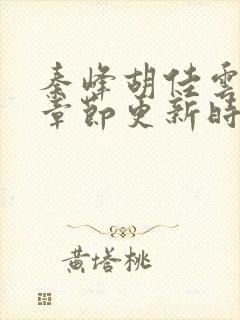 秦峰胡佳雲
章節更新時
黃塔桃